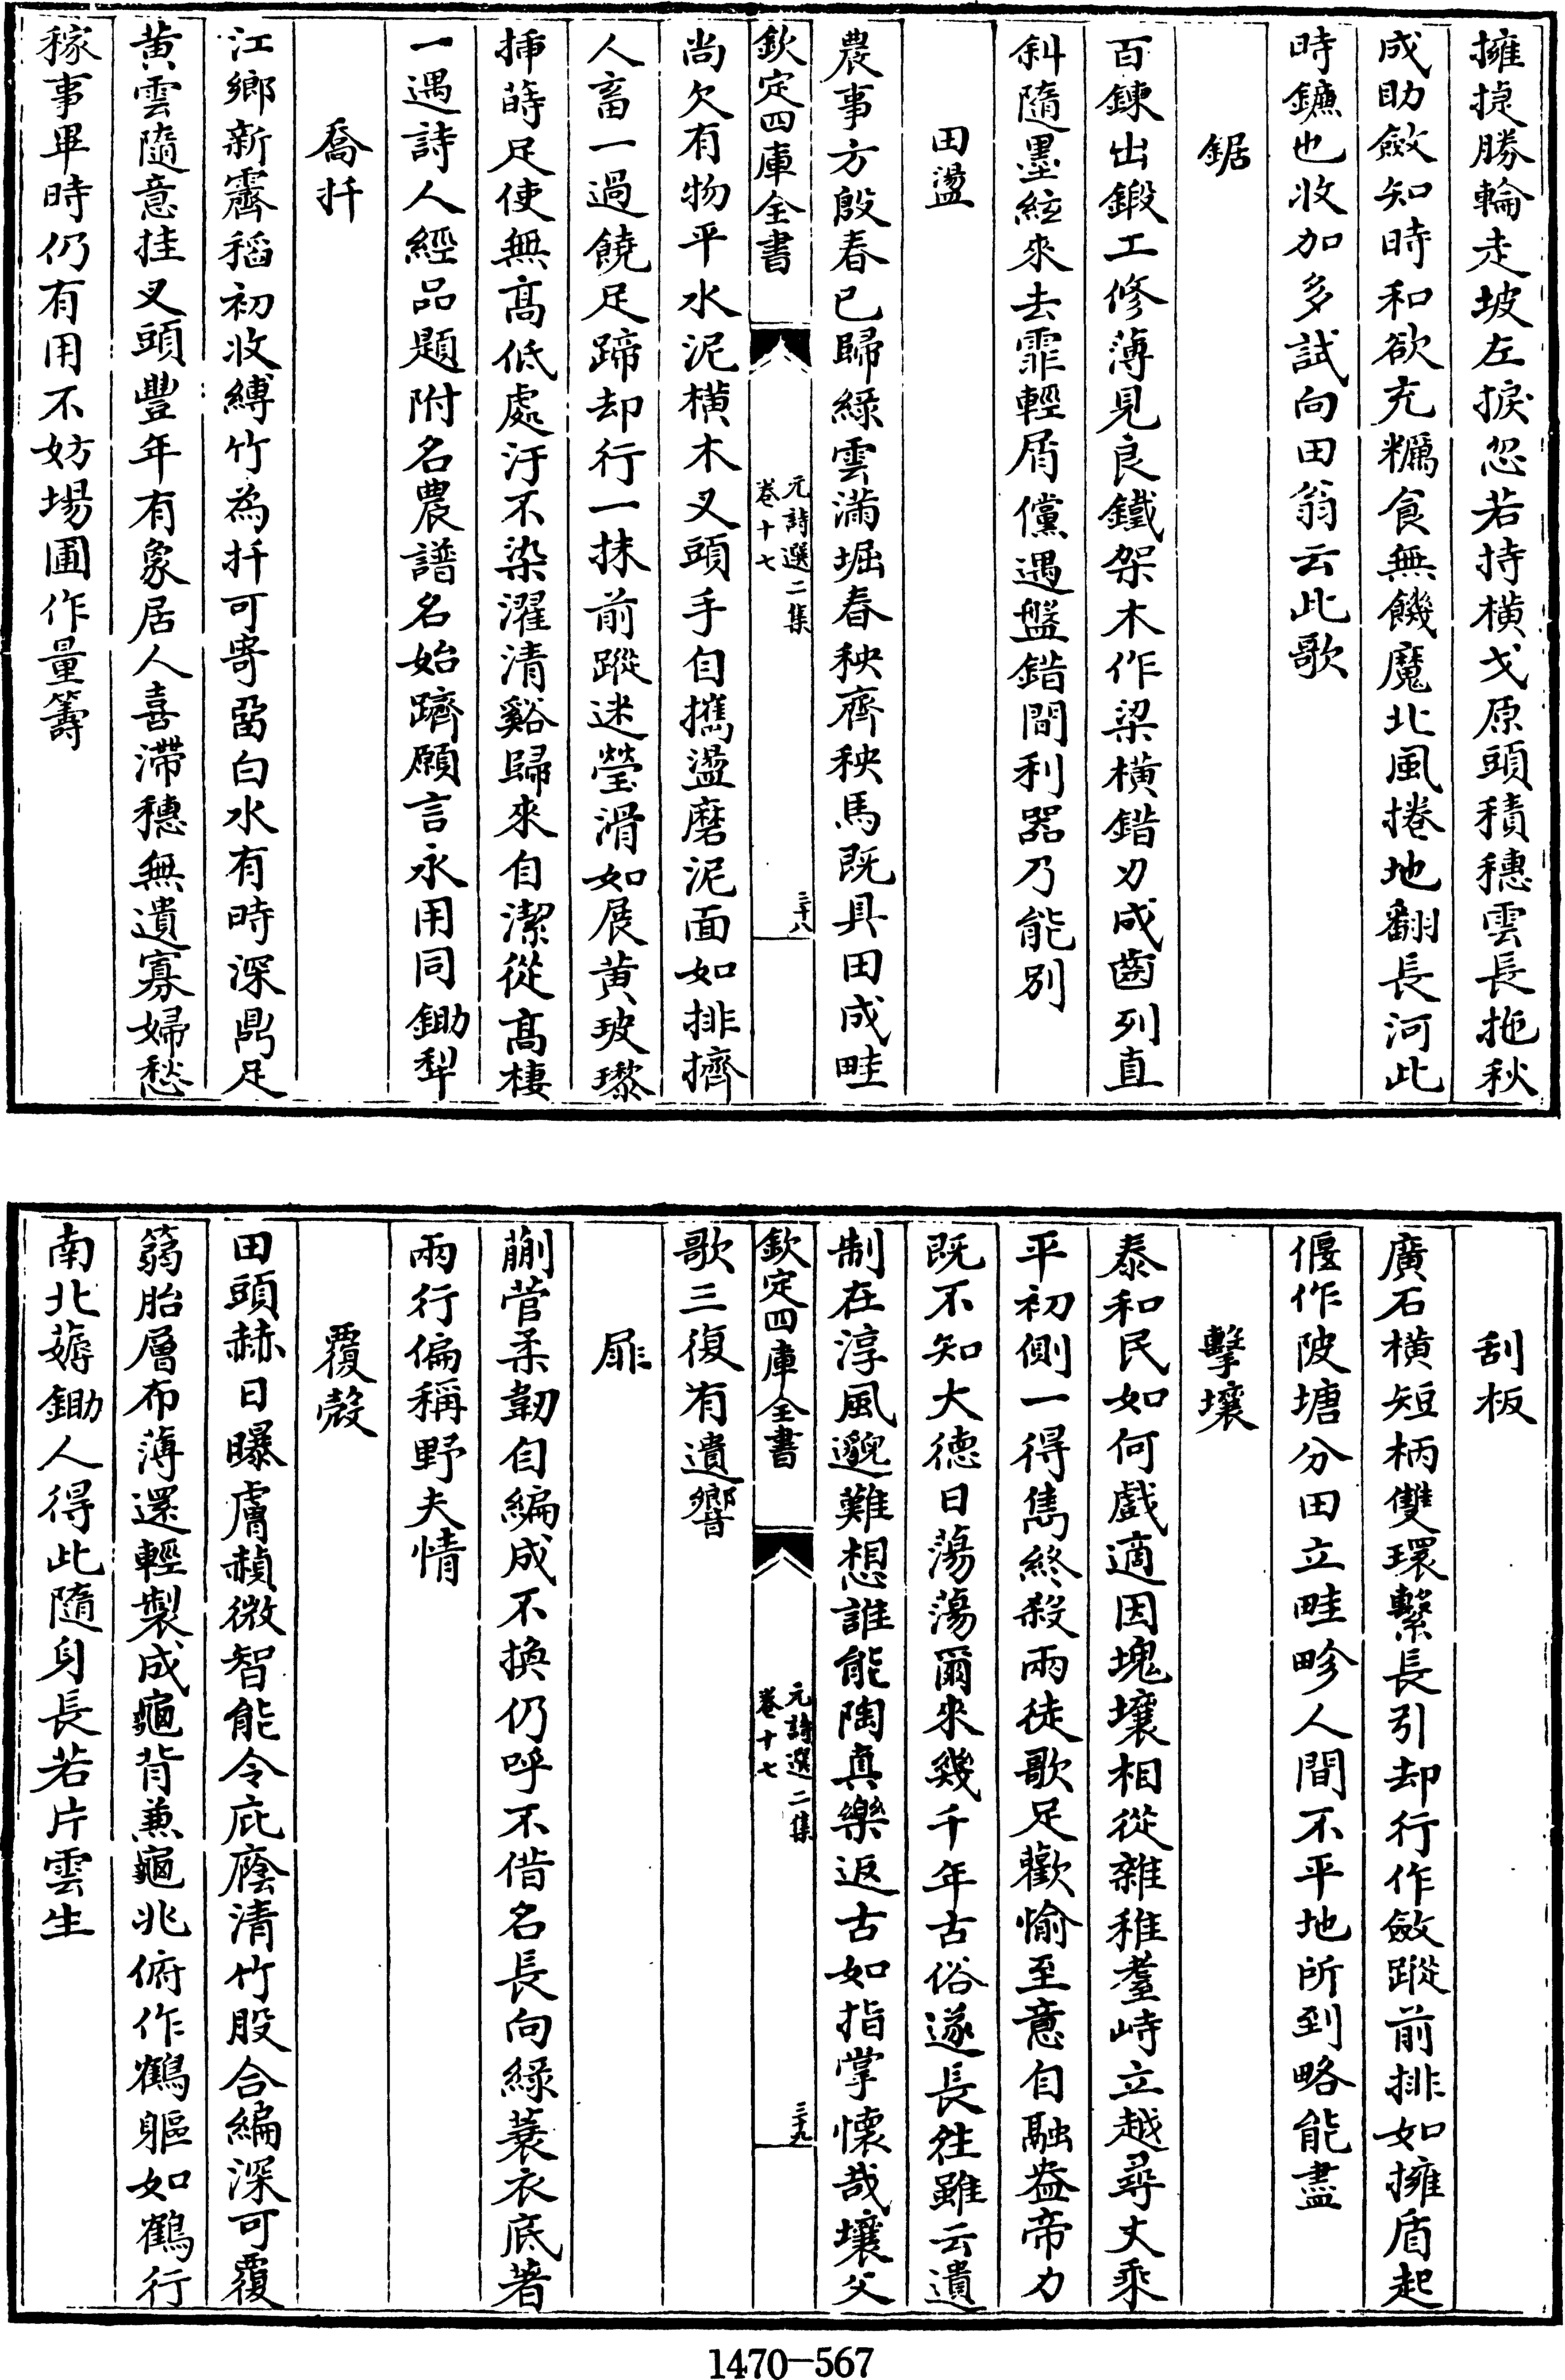 擁掠勝輪走坡左捩忽若持横戈原頭積穗雲長拖秋
成助斂知時和欲充糲食無饑魔北風捲地翻長河此
時鐮也收加多試向田翁云此歌
鋸
百鍊出鍛工修薄見良鐵架木作梁横錯刃成齒列直
斜隨墨絃來去霏輕屑儻遇盤錯間利器乃能别
田盪
農事方殷春已歸綠雲滿堀春秧齊秧馬既具田成畦
欽定四庫全書
元詩選二集
卷十七
三十八
尚欠有物平水泥横木叉頭手自攜盪磨泥面如排擠
人畜一過饒足蹄却行一抹前蹤迷瑩滑如展黄玻瓈
揷蒔足使無髙低處汙不染濯清谿歸來自潔從髙棲
一遇詩人經品題附名農譜名始躋願言永用同鋤犁
喬扦
江鄉新霽稻初收縛竹為扦可寄畱白水有時深鼎足
黄雲隨意挂叉頭豐年有象居人喜滯穗無遺寡婦愁
稼事畢時仍有用不妨場圃作量籌
刮板
廣石横短柄雙環繫長引却行作斂蹤前排如擁盾起
偃作陂塘分田立畦畛人間不平地所到略能盡
擊壤
泰和民如何戲適因塊壤相從雜稚耋峙立越尋丈乘
平初側一得雋終殺兩徒歌足歡愉至意自融盎帝力
既不知大德日蕩蕩爾來幾千年古俗遂長往雖云遺
制在淳風邈難想誰能陶真樂返古如指掌懷哉壤父
欽定四庫全書
元詩選二集
卷十七
三十九
歌三復有遺響
屝
蒯菅柔韌自編成不換仍呼不借名長向綠蓑衣底著
兩行偏稱野夫情
覆殻
田頭赫日曝膚赬微智能令庇廕清竹股合編深可覆
篛胎層布薄還輕製成龜背兼龜兆俯作鶴軀如鶴行
南北薅鋤人得此隨身長若片雲生
1470—567